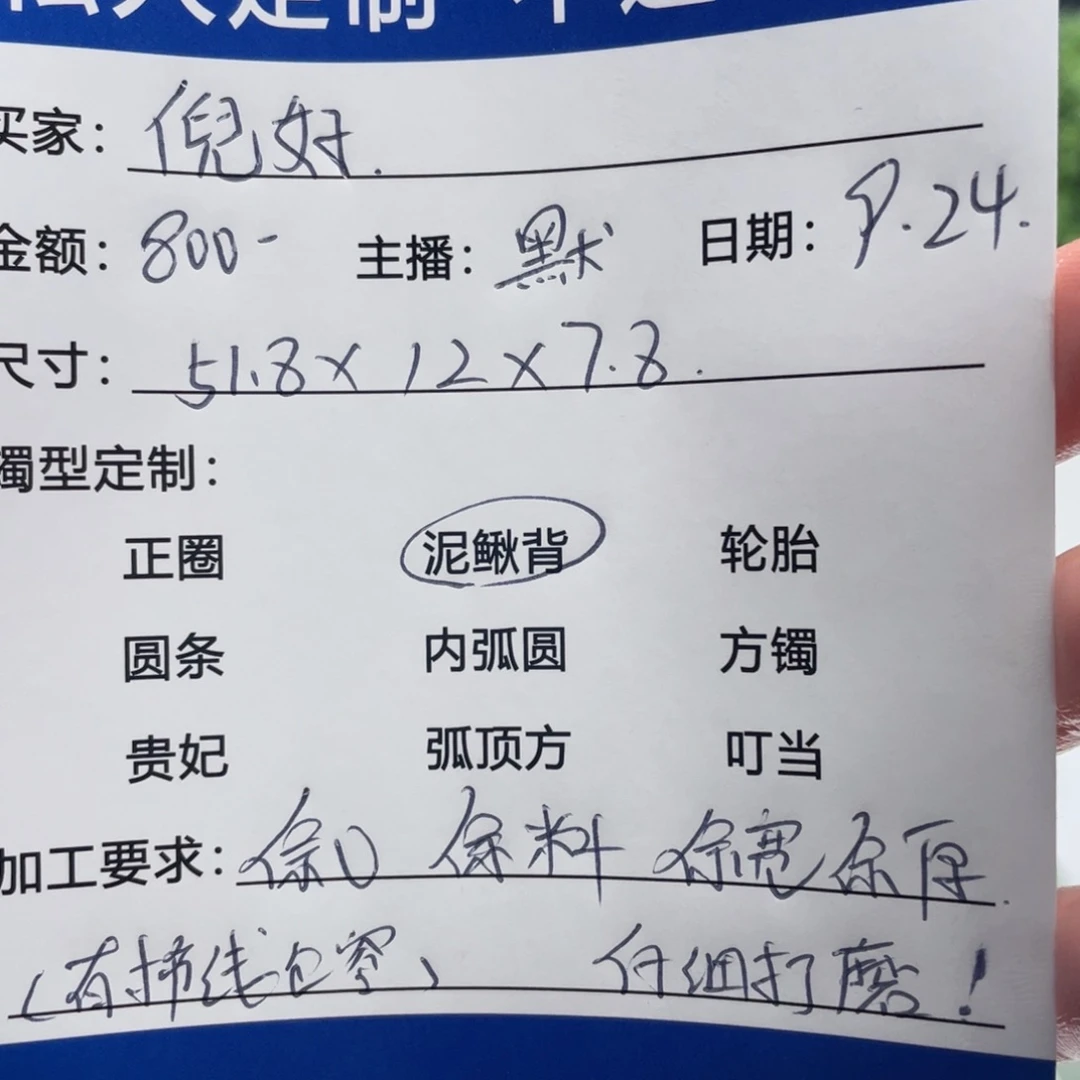 私人定制
买家：倪好.
金额：800- 主播：默 日期：9.24.
尺寸：51.8×12×7.8.
镯型定制：
正圈 泥鳅背 轮胎
圆条 内弧圆 方镯
贵妃 弧顶方 叮当
加工要求：保口 保料 保宽保厚.
（有棉线包容） 仔细打磨！